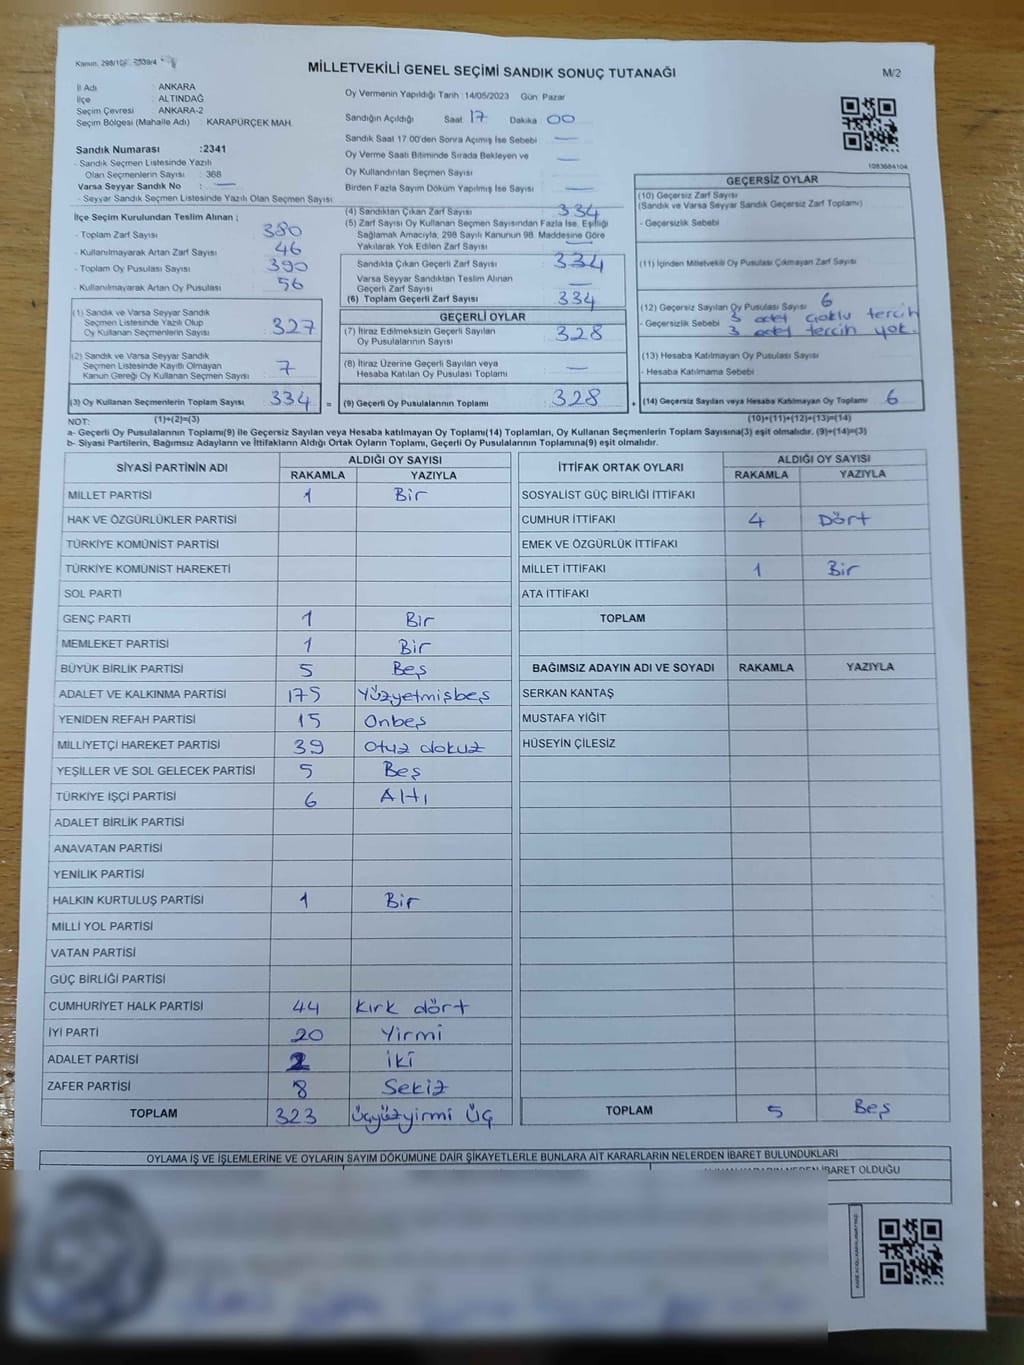 Kanun. 298/10
MİLLETVEKİLİ GENEL SEÇİMİ SANDIK SONUÇ TUTANAĞI
M/2
İl Adı : ANKARA
İlçe : ALTINDAĞ
Seçim Çevresi : ANKARA-2
Seçim Bölgesi (Mahalle Adı) : KARAPÜRÇEK MAH.
Oy Vermenin Yapıldığı Tarih :14/05/2023 Gün Pazar
Sandığın Açıldığı Saat 17 Dakika 00
Sandık Saat 17.00'den Sonra Açımış İse Sebebi —
Oy Verme Saati Bitiminde Sırada Bekleyen ve —
Oy Kullandırılan Seçmen Sayısı
Birden Fazla Sayım Döküm Yapılmış İse Sayısı —
1083684104
Sandık Numarası :2341
- Sandık Seçmen Listesinde Yazılı
Olan Seçmenlerin Sayısı : 368
Varsa Seyyar Sandık No : —
- Seyyar Sandık Seçmen Listesinde Yazılı Olan Seçmen Sayısı
İlçe Seçim Kurulundan Teslim Alınan ;
- Toplam Zarf Sayısı 380
- Kullanılmayarak Artan Zarf Sayısı 46
- Toplam Oy Pusulası Sayısı 390
- Kullanılmayarak Artan Oy Pusulası 56
(1) Sandık ve Varsa Seyyar Sandık
Seçmen Listesinde Yazılı Olup
Oy Kullanan Seçmenlerin Sayısı 327
(2) Sandık ve Varsa Seyyar Sandık
Seçmen Listesinde Kayıtlı Olmayan
Kanun Gereği Oy Kullanan Seçmen Sayısı 7
(3) Oy Kullanan Seçmenlerin Toplam Sayısı 334 =
(4) Sandıktan Çıkan Zarf Sayısı 334
(5) Zarf Sayısı Oy Kullanan Seçmen Sayısından Fazla İse, Eşitliği
Sağlamak Amacıyla, 298 Sayılı Kanunun 98. Maddesine Göre
Yakılarak Yok Edilen Zarf Sayısı —
Sandıkta Çıkan Geçerli Zarf Sayısı 334
Varsa Seyyar Sandıktan Teslim Alınan
Geçerli Zarf Sayısı —
(6) Toplam Geçerli Zarf Sayısı 334
GEÇERLİ OYLAR
(7) İtiraz Edilmeksizin Geçerli Sayılan
Oy Pusulalarının Sayısı 328
(8) İtiraz Üzerine Geçerli Sayılan veya
Hesaba Katılan Oy Pusulası Toplamı —
(9) Geçerli Oy Pusulalarının Toplamı 328 +
GEÇERSİZ OYLAR
(10) Geçersiz Zarf Sayısı
(Sandık ve Varsa Seyyar Sandık Geçersiz Zarf Toplamı)
- Geçersizlik Sebebi
(11) İçinden Milletvekili Oy Pusulası Çıkmayan Zarf Sayısı
(12) Geçersiz Sayılan Oy Pusulası Sayısı 6
- Geçersizlik Sebebi 3 adet çoklu tercih
3 adet tercih yok.
(13) Hesaba Katılmayan Oy Pusulası Sayısı
- Hesaba Katılmama Sebebi
(14) Geçersiz Sayılan veya Hesaba Katılmayan Oy Toplamı 6
NOT: (1)+(2)=(3) (10)+(11)+(12)+(13)=(14)
a- Geçerli Oy Pusulalarının Toplamı(9) ile Geçersiz Sayılan veya Hesaba Katılmayan Oy Toplamı(14) Toplamları, Oy Kullanan Seçmenlerin Toplam Sayısına(3) eşit olmalıdır. (9)+(14)=(3)
b- Siyasi Partilerin, Bağımsız Adayların ve İttifakların Aldığı Ortak Oyların Toplamı, Geçerli Oy Pusulalarının Toplamına(9) eşit olmalıdır.
SİYASİ PARTİNİN ADI ALDIĞI OY SAYISI
RAKAMLA YAZIYLA
MİLLET PARTİSİ 1 Bir
HAK VE ÖZGÜRLÜKLER PARTİSİ
TÜRKİYE KOMÜNİST PARTİSİ
TÜRKİYE KOMÜNİST HAREKETİ
SOL PARTİ
GENÇ PARTİ 1 Bir
MEMLEKET PARTİSİ 1 Bir
BÜYÜK BİRLİK PARTİSİ 5 Beş
ADALET VE KALKINMA PARTİSİ 175 Yüzyetmişbeş
YENİDEN REFAH PARTİSİ 15 Onbeş
MİLLİYETÇİ HAREKET PARTİSİ 39 Otuz dokuz
YEŞİLLER VE SOL GELECEK PARTİSİ 5 Beş
TÜRKİYE İŞÇİ PARTİSİ 6 Altı
ADALET BİRLİK PARTİSİ
ANAVATAN PARTİSİ
YENİLİK PARTİSİ
HALKIN KURTULUŞ PARTİSİ 1 Bir
MİLLİ YOL PARTİSİ
VATAN PARTİSİ
GÜÇ BİRLİĞİ PARTİSİ
CUMHURİYET HALK PARTİSİ 44 Kırk dört
İYİ PARTİ 20 Yirmi
ADALET PARTİSİ 2 İki
ZAFER PARTİSİ 8 Sekiz
TOPLAM 323 Üçyüzyirmi Üç
İTTİFAK ORTAK OYLARI ALDIĞI OY SAYISI
RAKAMLA YAZIYLA
SOSYALİST GÜÇ BİRLİĞİ İTTİFAKI
CUMHUR İTTİFAKI 4 Dört
EMEK VE ÖZGÜRLÜK İTTİFAKI
MİLLET İTTİFAKI 1 Bir
ATA İTTİFAKI
TOPLAM
BAĞIMSIZ ADAYIN ADI VE SOYADI RAKAMLA YAZIYLA
SERKAN KANTAŞ
MUSTAFA YİĞİT
HÜSEYİN ÇİLESİZ
TOPLAM 5 Beş
OYLAMA İŞ VE İŞLEMLERİNE VE OYLARIN SAYIM DÖKÜMÜNE DAİR ŞİKAYETLERLE BUNLARA AİT KARARLARIN NELERDEN İBARET BULUNDUKLARI
İBARET OLDUĞU